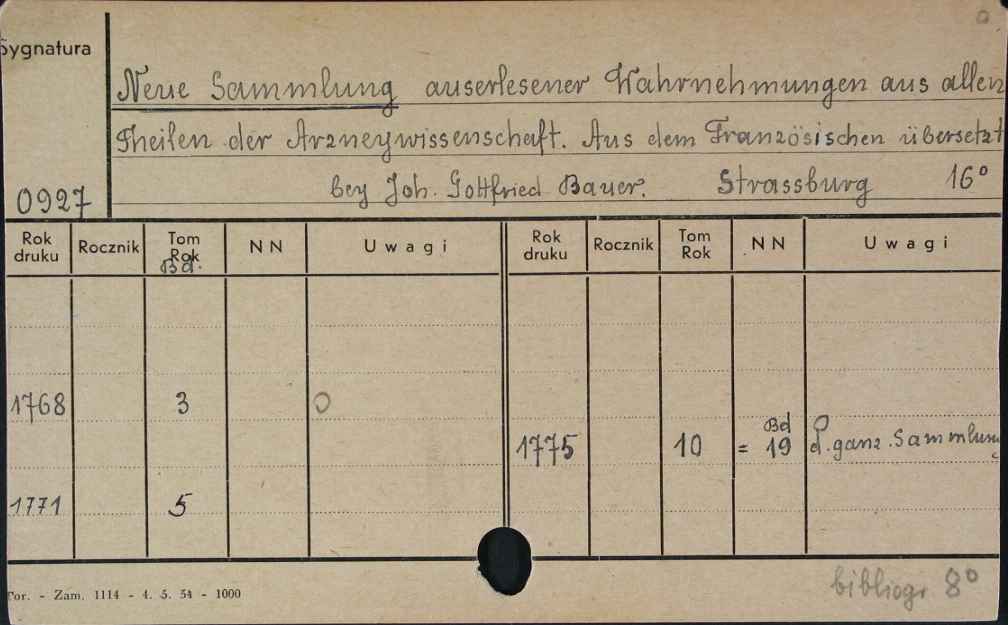 Sygnatura
Neue Sammlung auserlesener Wahrnehmungen aus allen
Theilen der Arzneywissenschaft. Aus dem Französischen übersetzt
bey Joh. Gottfried Bauer. Strassburg 16°
0927
Rok druku Rocznik Tom Rok Bd. NN Uwagi Rok druku Rocznik Tom Rok NN Uwagi
1768 3 O
1775 10 = Bd 19 O d. ganz. Sammlung
1771 5
bibliogr 8°
Tor. - Zam. 1114 - 4. 5. 54 - 1000